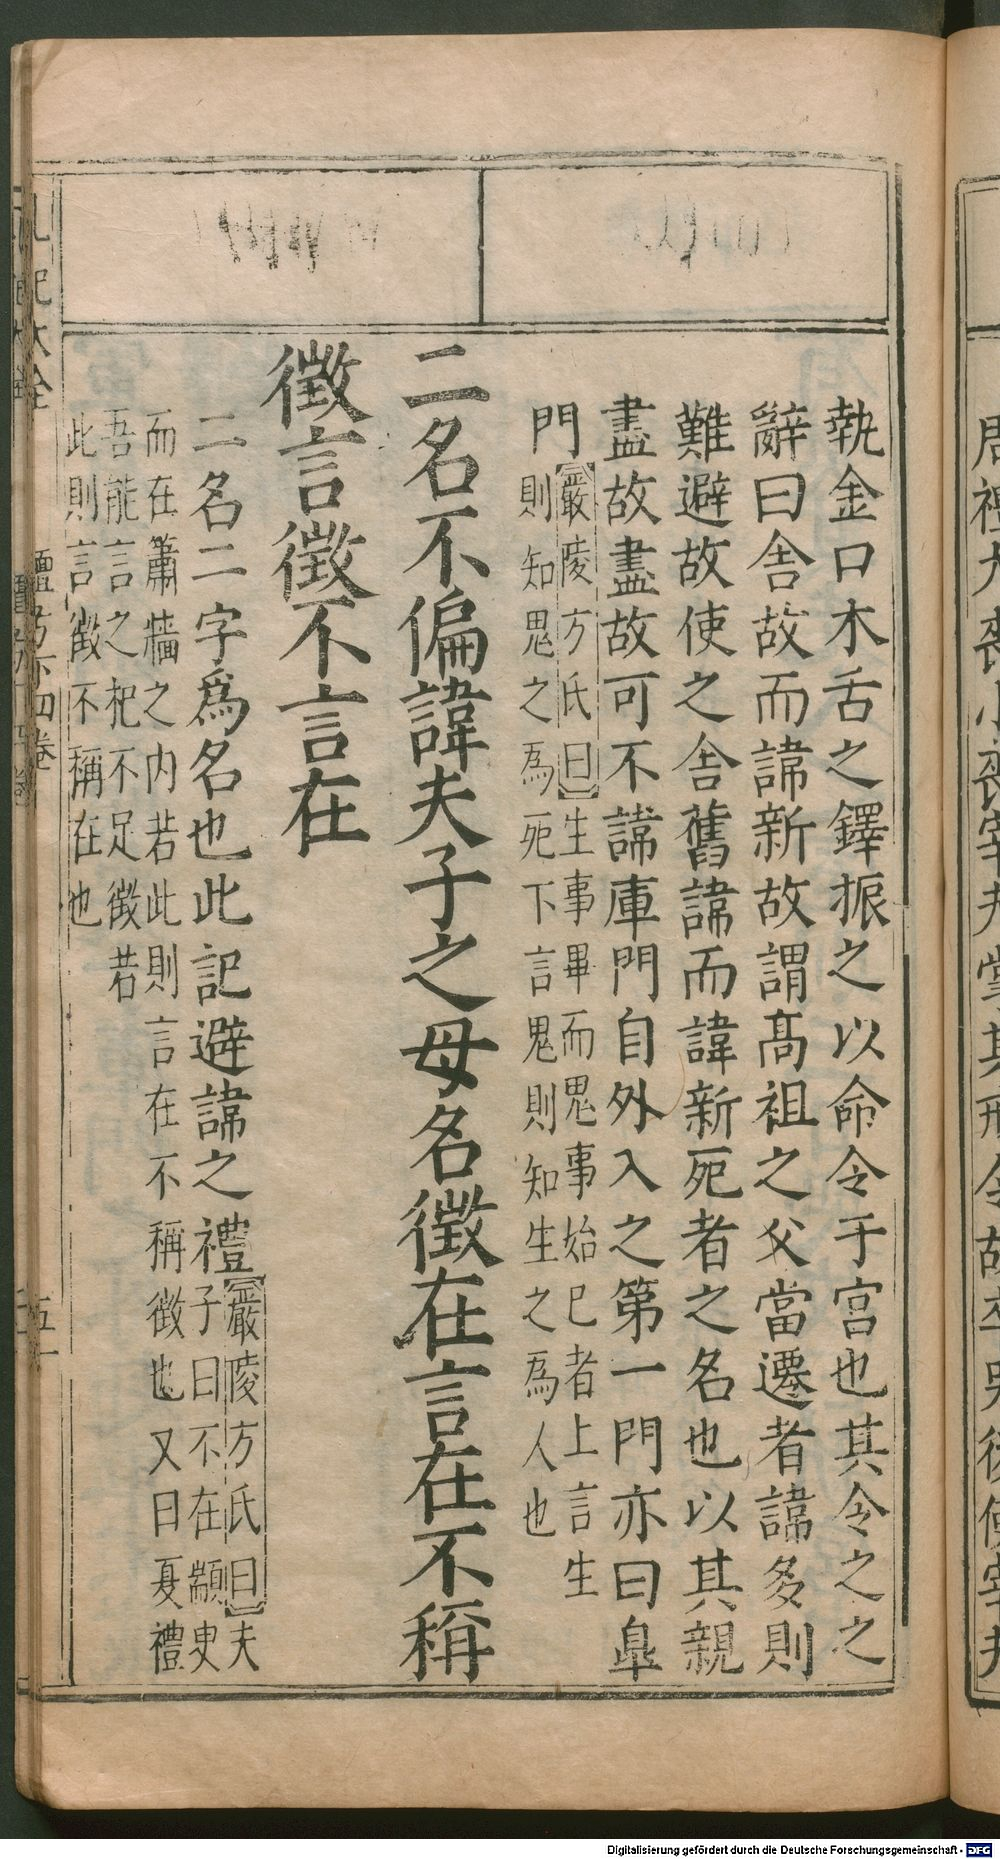 執金口木舌之鐸振之以命令于宮也其令之之
辭曰舍故而諱新故謂髙祖之父當遷者諱多則
難避故使之舍舊諱而諱新死者之名也以其親
盡故盡故可不諱庫門自外入之第一門亦曰臯
門
嚴陵方氏曰生事畢而鬼事始已者上言生
則知鬼之為死下言鬼則知生之為人也
二名不偏諱夫子之母名徵在言在不稱
徵言徵不言在
二名二字爲名也此記避諱之禮
嚴陵方氏曰夫
子曰不在顓臾
而在簫牆之内若此則言在不稱徵也又曰夏禮
吾能言之杞不足徵若
此則言徵不稱在也
禮記大全
檀弓下四卷
五十
Digitalisierung gefördert durch die Deutsche Forschungsgemeinschaft - DFG